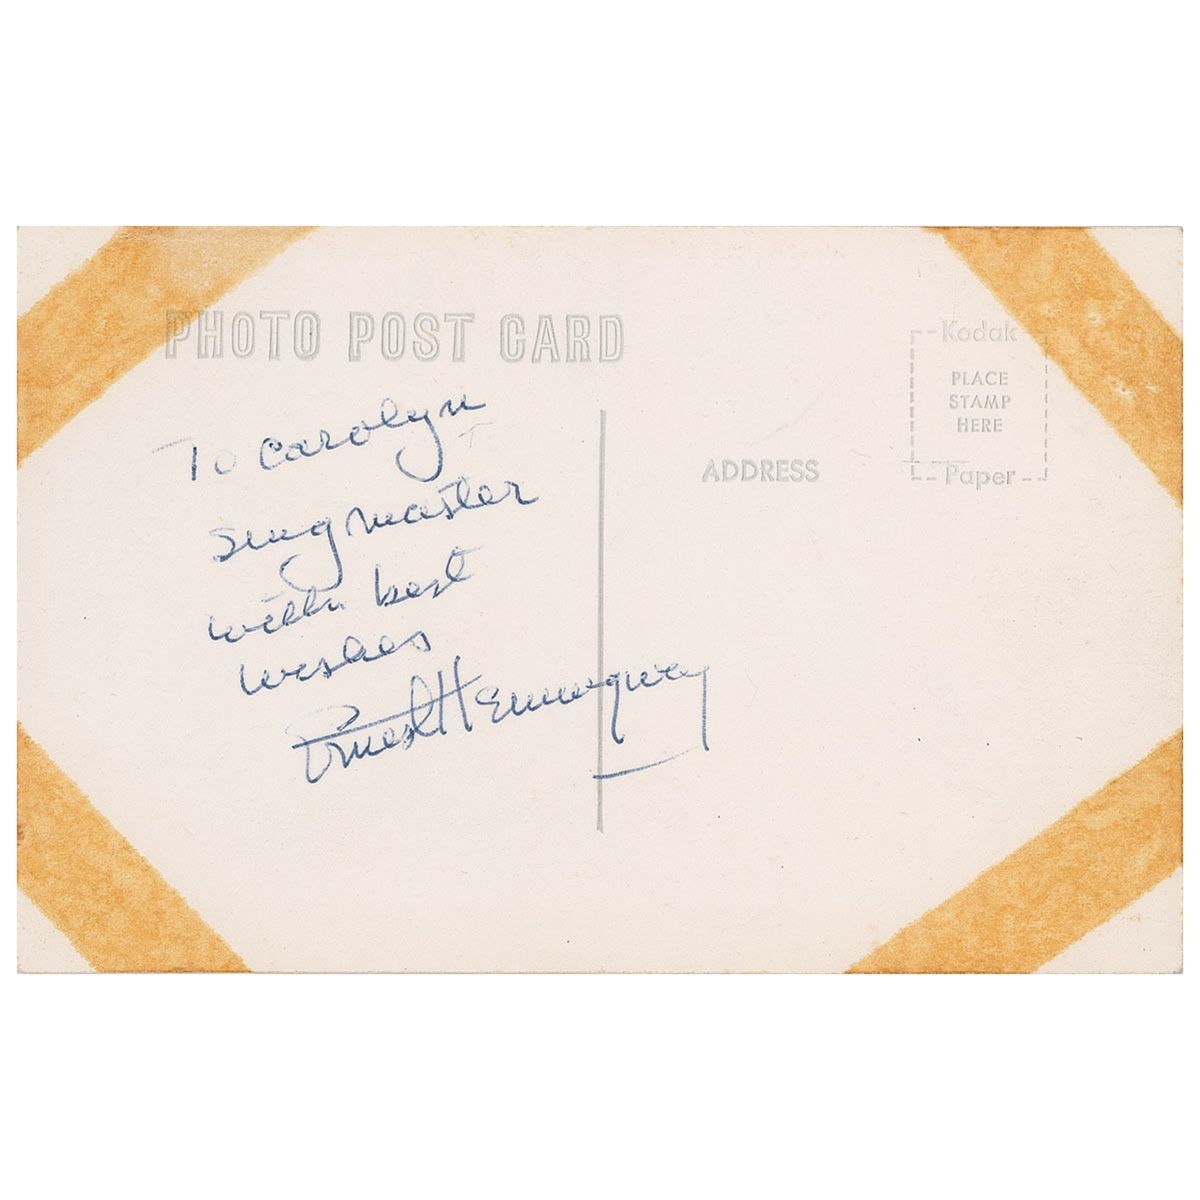 PHOTO POST CARD
Kodak
PLACE
STAMP
HERE
Paper
ADDRESS
To Carolyn
Singmaster
with best
wishes
Ernest Hemingway